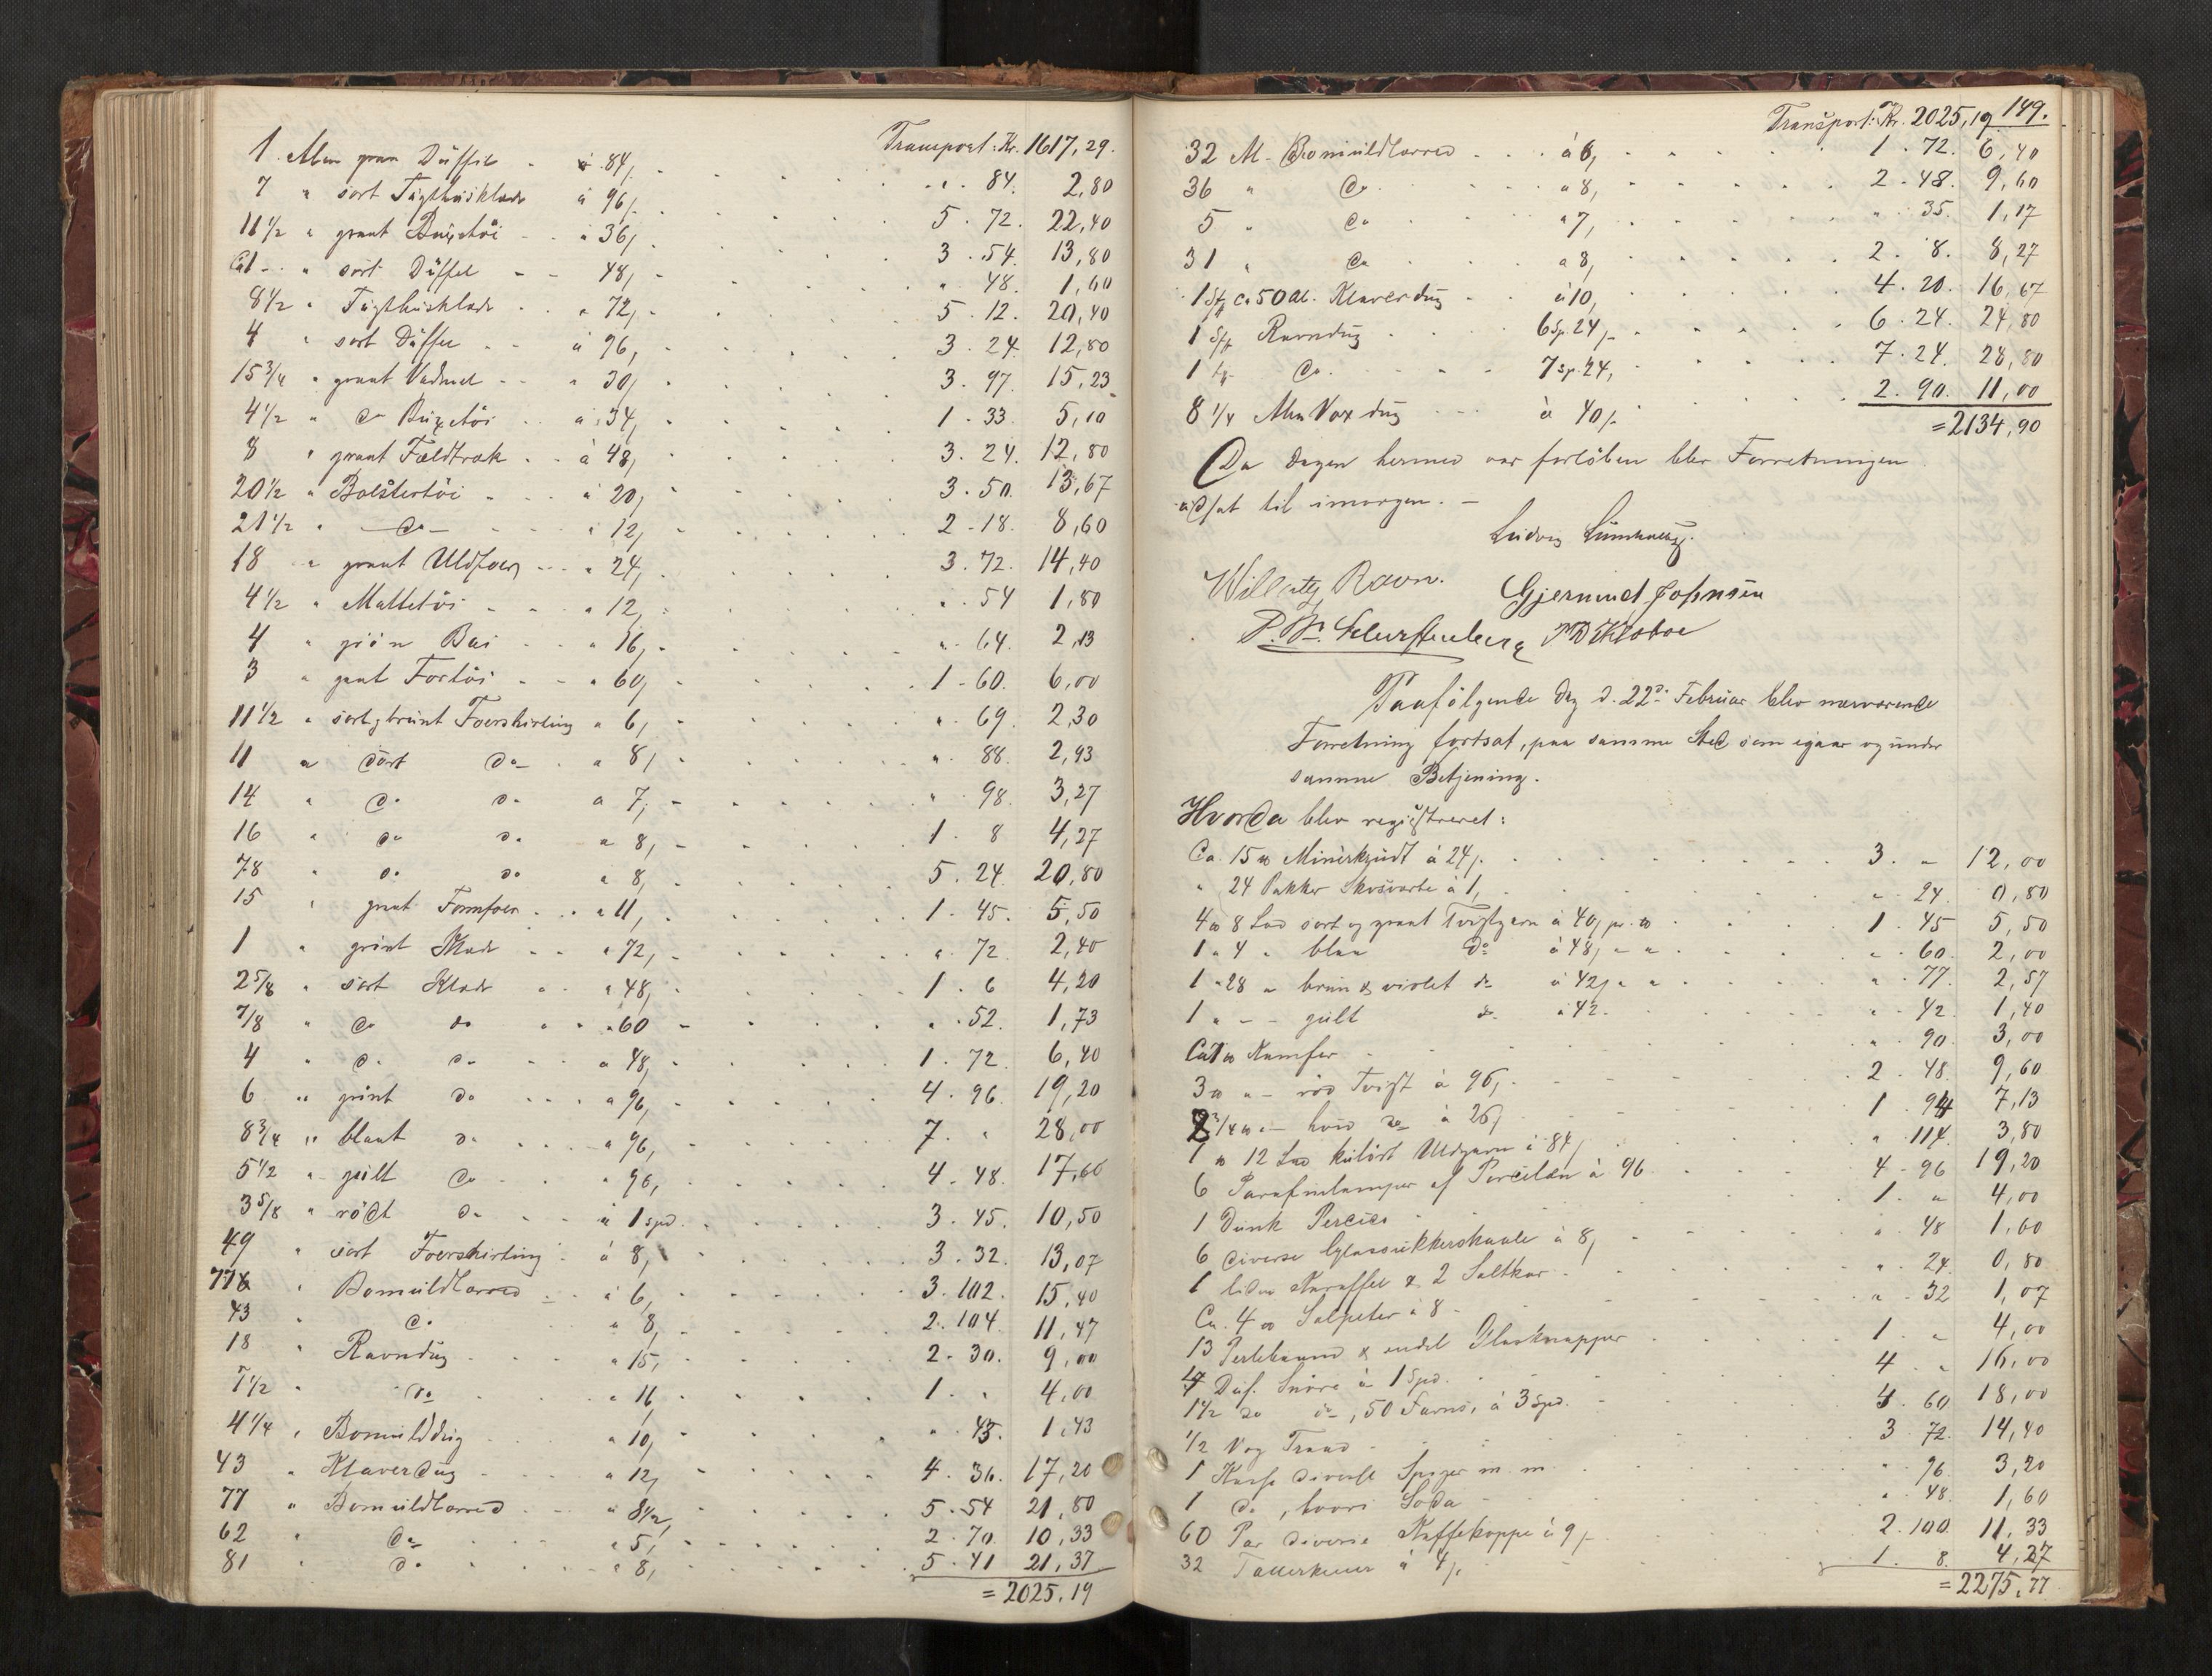 Transport: Kr. 1617,29.
1 Alen graa Düffel - à 84, " 84. 2,80
7 " sort Tügthüsklæde à 96, 5. 72. 22,40
11 1/2 " graat Büxetöi - " 36, 3. 54. 13,80
Ca 1 - " sort Düffel - - 48, " 48. 1,60
8 1/2 " Tügthüsklæde - " 72, 5. 12. 20,40
4 " sort Düffel - - à 96, 3. 24. 12,80
15 3/4 " graat Vadmel - - " 30, 3. 97. 15,23
4 1/2 " do Büxetöi - à 34, 1. 33. 5,10
8 " graat Fældtræk - à 48, 3. 24. 12,80
20 1/2 " Bolstertöi - - à 20, 3. 50. 13,67
21 1/2 " - do - - " 12, 2. 18. 8,60
18 " graat Uldfoer - - " 24, 3. 72. 14,40
4 1/2 " Mattetöi - - " 12, " 54 1,80
4 " grön Bai - - " 16, " 64. 2,13
3 " graat Fortöi - - " 60, 1. 60. 6,00
11 1/2 " sort, brünt Foershirting " 6, " 69. 2,30
11 " sort do - " 8, " 88. 2,93
14 " do do à 7, " 98. 3,27
16 " do do " 8, 1. 8 4,27
78 " do do " 8, 5. 24. 20,80
15 " graat Formfoer - " 11, 1. 45. 5,50
1 " grönt Klæde - - " 72, " 72. 2,40
2 5/8 " sort Klæde - " 48, 1. 6 4,20
7/8 " do do " 60 " 52. 1,73
4 " do do " 48, 1. 72. 6,40
6 " grönt do " 96, 4. 96. 19,20
8 3/4 " blaat do " 96, 7. " 28,00
5 1/2 " gült do " 96, 4. 48. 17,60
3 5/8 " rödt do à 1 spd. 3. 45. 10,50
49 " sort Foershirting - à 8, 3. 32. 13,07
77 " Bomüldlærred - à 6, 3. 102. 15,40
43 " do " 8, 2. 104. 11,47
18 " Ravndüg " 15, 2. 30. 9,00
7 1/2 " do " 16, 1. " 4,00
4 1/4 " Bomülddüg " 10, " 43. 1,43
43 " Klaverdüg " 12, 4. 36. 17,20
77 " Bomüldlærred " 8 1/2, 5. 54 21,80
62 " do " 5, 2. 70. 10,33
81 " do " 8, 5. 41 21,37
= 2025,19
149.
Transport: Kr. 2025,19
32 Al. Bomüldlærred à 6, 1. 72. 6,40
36 " do " 8, 2. 48. 9,60
5 " do " 7, " 35. 1,17
31 " do à 8, 2. 8. 8,27
1 St. ca 50 Al. Klaverdüg à 10, 4. 20. 16,67
1 St. Ravndüg 6 Sp. 24, 6. 24. 24,80
1 St. do 7 sp. 24, 7. 24. 28,80
8 1/4 Alen Voxdüg à 40, 2. 90. 11,00
= 2134,90
Da dagen hermed var forlöben blev Forretningen
üdsat til imorgen. -
Ludvig
Ravn. Gjermund Johnsen
Paafölgende Dag d. 22d: Februar blev nærværende
Forretning fortsat, paa samme Sted som igaar og under
samme Betjening.
Hvorda blev registreret:
Ca. 15 ℔ Minerkrüdt à 24, 3. - 12,00
" 24 Pakker Skosværte à 1, " 24. 0,80
4 ℔ 8 Lod sort og graat Tvistgarn à 40, pr. ℔ 1. 45 5,50
1 " 4 " blaa do à 48, " " " 60. 2,00
1 " 28 " brün & violet do à 42, " " " 77. 2,57
1 " - - gült do à 42. " 42 1,40
Ca 1 ℔ Kamfer " 90 3,00
3 ℔ " - röd Tvist à 96, 2. 48. 9,60
8 3/4 ℔ " - hvid do à 26, 1. 94 7,13
1 ℔ 12 Lod külört Uldgarn à 84, " 114. 3,80
6 Parafinlamper af Porcelæn à 96 4. 96 19,20
1 Dünk Persico 1. " 4,00
6 diverse Glassükkerskaale à 8, " 48 1,60
1 liden Karaffel & 2 Saltkar " 24. 0,80
Ca. 4 ℔ Salpeter à 8 " 32 1,07
13 Perlebaand & endel Glasknapper 1. " 4,00
4 Düs. Snöre à 1 Spd. 4. " 16,00
1 1/2 do do, 50 Favns, à 3 Spd. 4. 60 18,00
1/2 Vog Traad 3. 72. 14,40
1 Kasse diverse Spiger m. m. " 96 3,20
1 do, hvori Soda " 48. 1,60
60 Par diverse Kaffekoppe à 9, 2. 100. 11,33
32 Tallerkener à 4, 1. 8. 4,27
= 2275,77